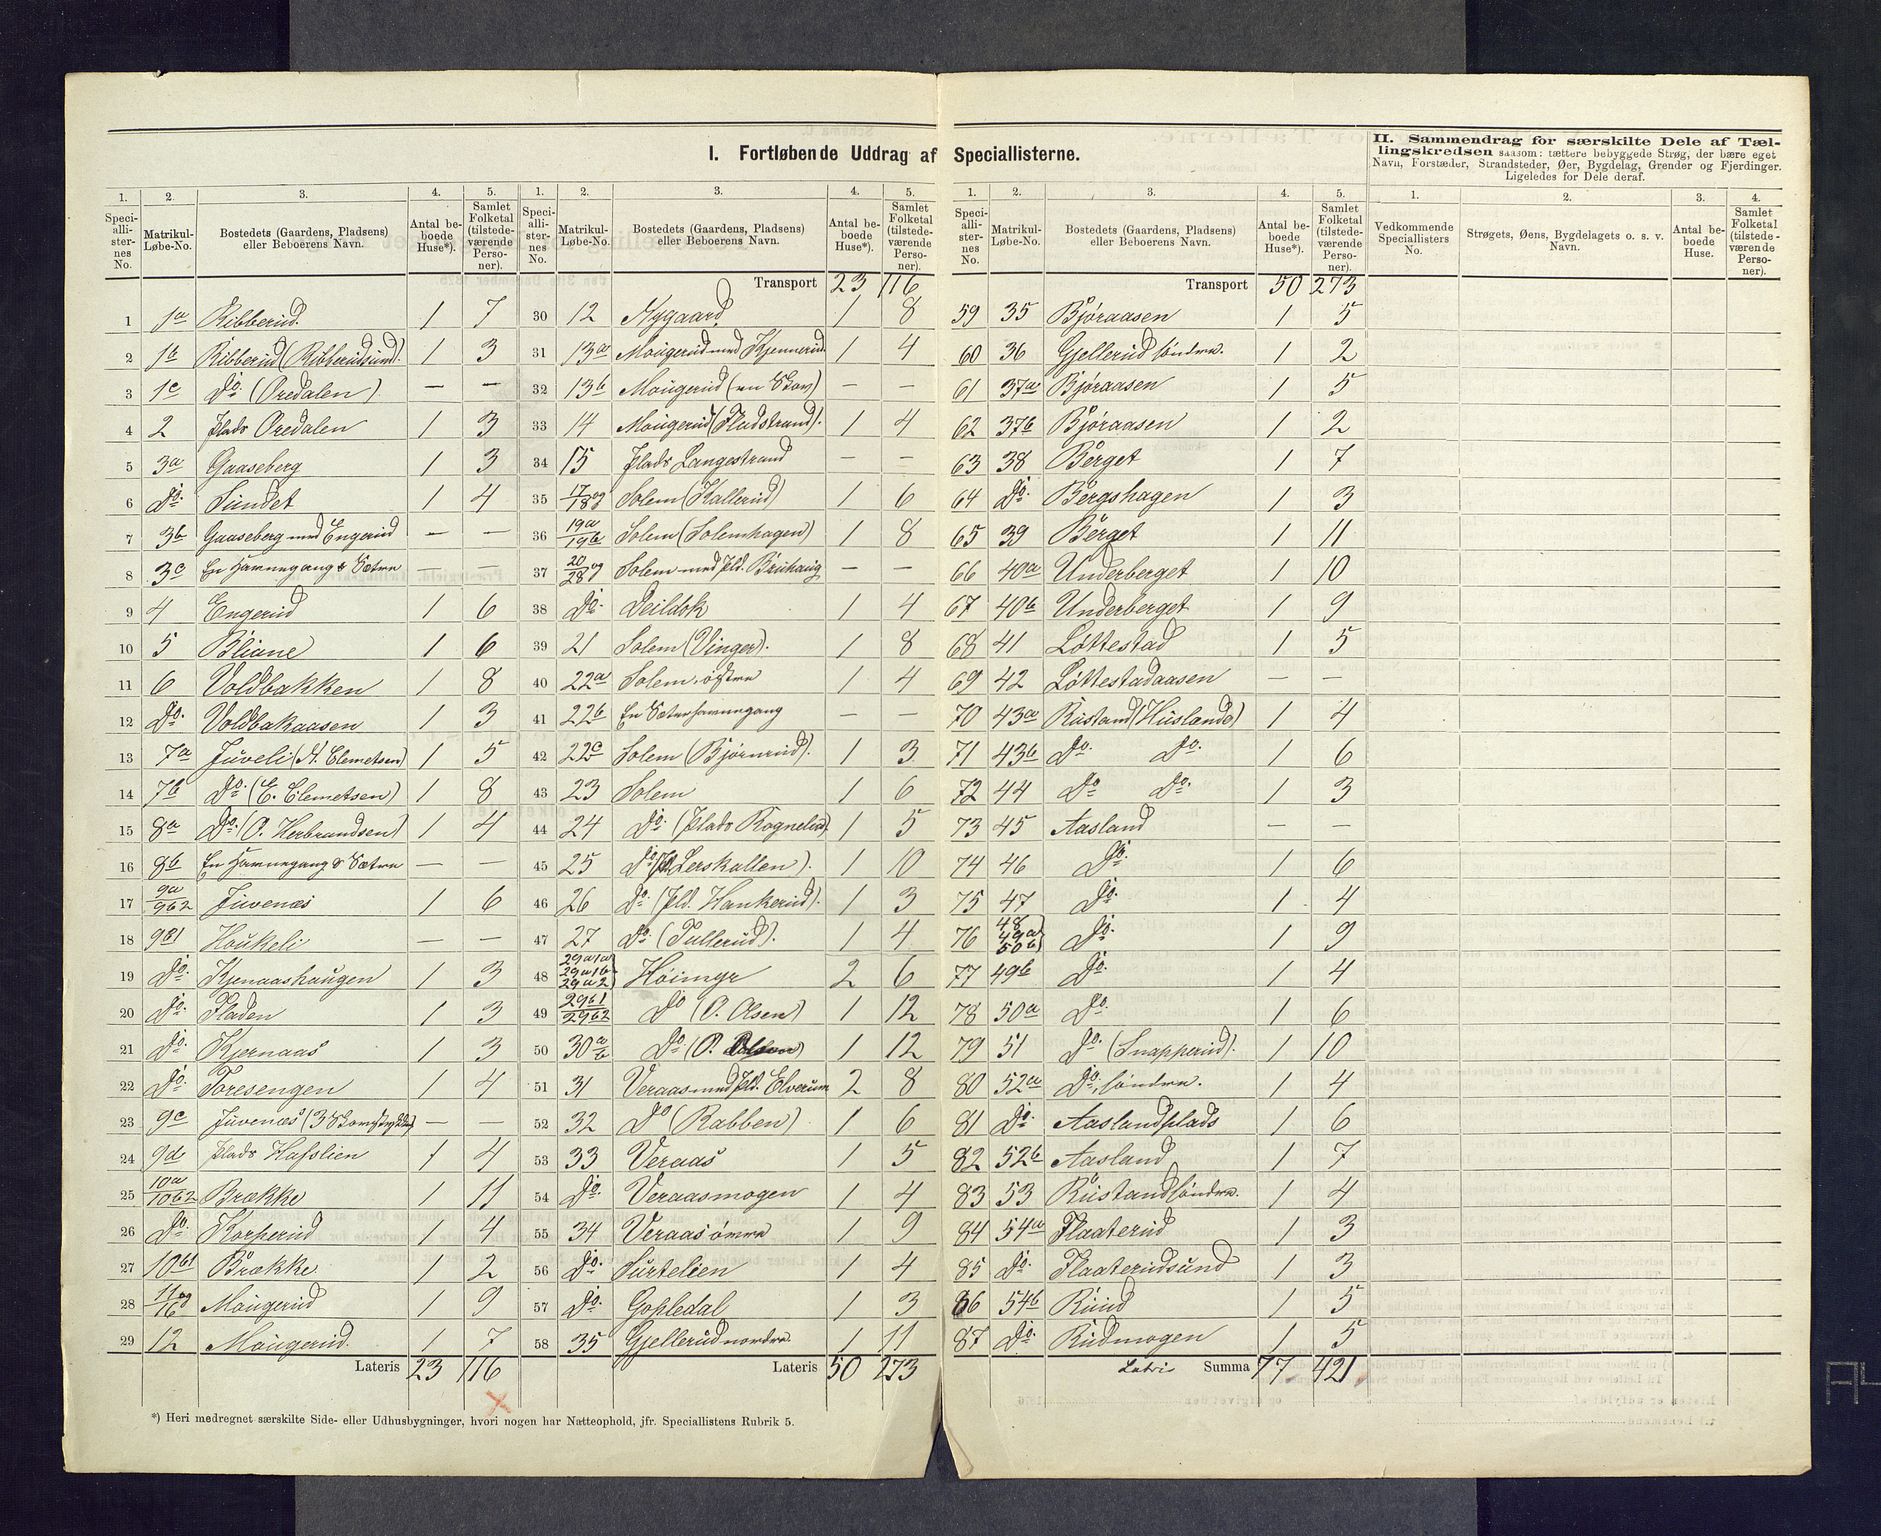 I. Fortløbende Uddrag af Speciallisterne.
II. Sammendrag for særskilte Dele af Tællingskredsen saasom: tættere bebyggede Strøg, der bære eget
Navn, Forstæder, Strandsteder, Øer, Bygdelag, Grender og Fjerdinger.
Ligeledes for Dele deraf.
1. 2. 3. 4. 5.
Speciallisternes No. Matrikul-Løbe-No. Bostedets (Gaardens, Pladsens) eller Beboerens Navn. Antal beboede Huse*). Samlet Folketal (tilstedeværende Personer).
1 1a Ribberud. 1 7
2 1b Ribberud (Ribberudsund). 1 3
3 1c Do. (Oredalen). — —
4 2 plads Oredalen 1 3
5 3a Gaaseberg 1 3
6 Do. Sundet 1 4
7 3b Gaaseberg med Engerud — —
8 3c En Havnegang & Sætre — —
9 4 Engerud 1 6
10 5 Bliane 1 6
11 6 Voldbakken 1 8
12 Do. Voldbakaasen 1 3
13 7a Juveli (A. Clemetsen) 1 5
14 7b Do. (E. Clemetsen) 1 8
15 8a Do. (O. Herbrandsen) 1 4
16 8b En Havnegang & Sætre — —
17 9a/9b2 Juvenæs 1 6
18 9b1 Houkeli — —
19 Do. Kjenaashaugen 1 3
20 Do. Fladen 1 3
21 Do. Kjernaas 1 3
22 Do. Toresengen 1 4
23 9c Juvenæs (3 Skovstykker) — —
24 9d plads Hafslien 1 4
25 10a/10b2 Brække 1 11
26 Do. Korperud 1 4
27 10b1 Brække 1 2
28 11 og 16 Mougerud 1 9
29 12 Mougerud. 1 7
Lateris 23 116
1. 2. 3. 4. 5.
Speciallisternes No. Matrikul-Løbe-No. Bostedets (Gaardens, Pladsens) eller Beboerens Navn. Antal beboede Huse*). Samlet Folketal (tilstedeværende Personer).
Transport 23 116
30 12 Nygaard 1 8
31 13a Mougerud med Kjennerud 1 4
32 13b Mougerud (en Skov) — —
33 14 Mougerud (Fladstrand). 1 4
34 15 plads Langestrand — —
35 17 og 18 Solem (Kallerud) 1 6
36 19a/19b Solem (Solemhagen) 1 8
37 20 og 28 Solem med pld. Brihaug — —
38 Do. Deildok 1 4
39 21 Solem (Vinger). 1 8
40 22a Solem, østre 1 4
41 22b En Sæterhavnegang — —
42 22c Solem (Bjørnrud). 1 3
43 23 Solem 1 6
44 24 Do. (plads Rognelid). 1 5
45 25 Do. (pl. Lerskallen). 1 10
46 26 Do. (pld. Hankerud). 1 3
47 27 Do. (Tullerud). 1 4
48 29a1a 29a1b 29a2 Høimyr 2 6
49 29b1/29b2 Do (O. Olsen) 1 12
50 30a/b Do. (P. ) 1 12
51 31 Veraas med pld. Elverum 2 8
52 32 Do (Rabben) 1 6
53 33 Veraas 1 5
54 Do. Veraasmogen 1 4
55 34 Veraas øvre 1 9
56 Do. Surtelien 1 4
57 Do. Gopledal 1 3
58 35 Gjellerud nordre 1 11
Lateris 50 273
1. 2. 3. 4. 5.
Speciallisternes No. Matrikul-Løbe-No. Bostedets (Gaardens, Pladsens) eller Beboerens Navn. Antal beboede Huse*). Samlet Folketal (tilstedeværende Personer).
Transport 50 273
59 35 Bjøraasen 1 5
60 36 Gjellerud søndre. 1 2
61 37a Bjøraasen 1 5
62 37b Bjøraasen 1 2
63 38 Berget 1 7
64 Do. Bergshagen 1 3
65 39 Berget 1 11
66 40a Underberget 1 10
67 40b Underberget 1 9
68 41 Løttestad 1 5
69 42 Løttestadaasen — —
70 43a Rustand (Huslande) 1 4
71 43b Do. Do. 1 6
72 44 Do Do. 1 3
73 45 Aasland — —
74 46 Do. 1 6
75 47 Do. 1 4
76 48 49a 50b Do. 1 9
77 49b Do. 1 4
78 50a Do. 1 6
79 51 Do. (Snapperud). 1 10
80 52a Do. søndre. 1 4
81 Do. Aaslandplads 1 6
82 52b Aasland 1 7
83 53 Rustand søndre. 1 4
84 54a Flaaterud 1 3
85 Do. Flaaterudsund 1 3
86 54b Ruud 1 5
87 Do. Rudmogen 1 5
Latris Summa 77 421
1. 2. 3. 4.
Vedkommende Speciallisters No. Strøgets, Øens, Bygdelagets o. s. v. Navn. Antal beboede Huse. Samlet Folketal (tilstedeværende Personer).
*) Heri medregnet særskilte Side- eller Udhusbygninger, hvori nogen har Natteophold, jfr. Speciallistens Rubrik 5.